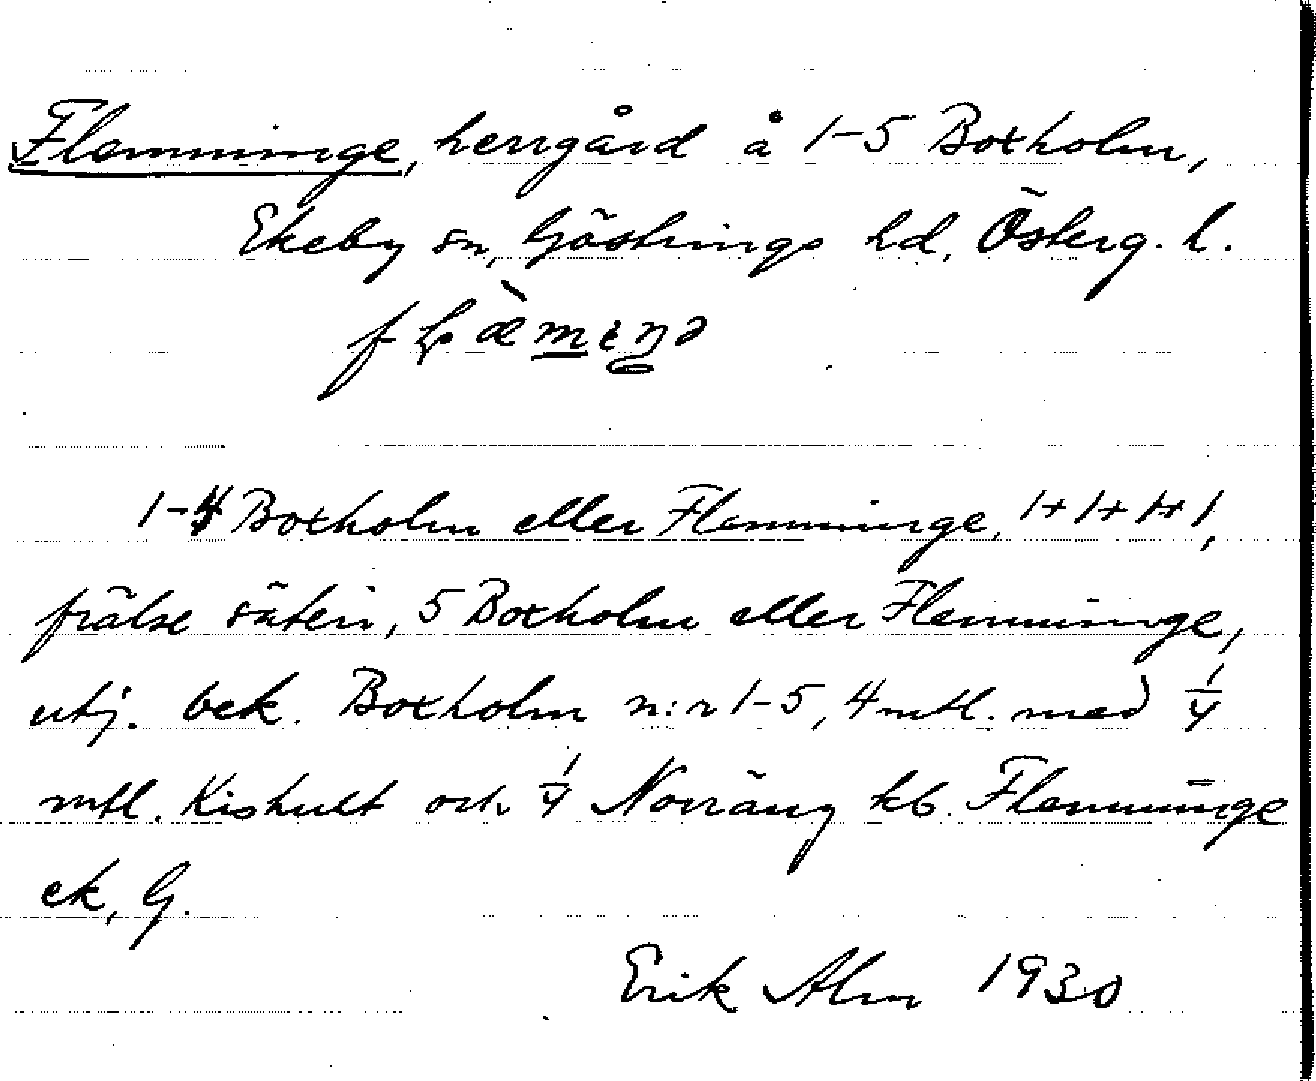 Flemminge, herrgård å 1-5 Boxholm,
Ekeby sn, Göstrings hd, Österg. l.
1-4 Boxholm eller Flemminge, 1+1+1+1,
frälse säteri, 5 Boxholm eller Flemminge,
utj. bek. Boxholm n:r 1-5, 4 mtl. med 1/4
mtl. Kishult och 1/4 Norräng kb. Flemminge
ek, G.
Erik Alm 1930